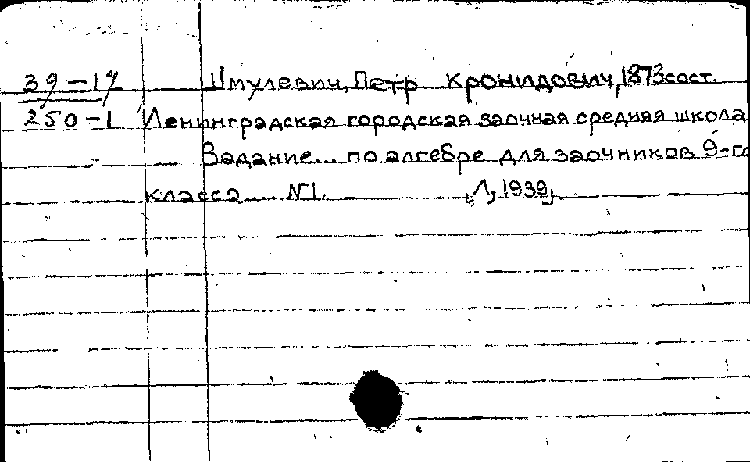 39-17 Шмулевич, Петр Кронидович, 1873 сост.
250-1 Ленинградская городская заочная средняя школа
Задание... по алгебре для заочников 9-го
класса N1. Л, 1939,